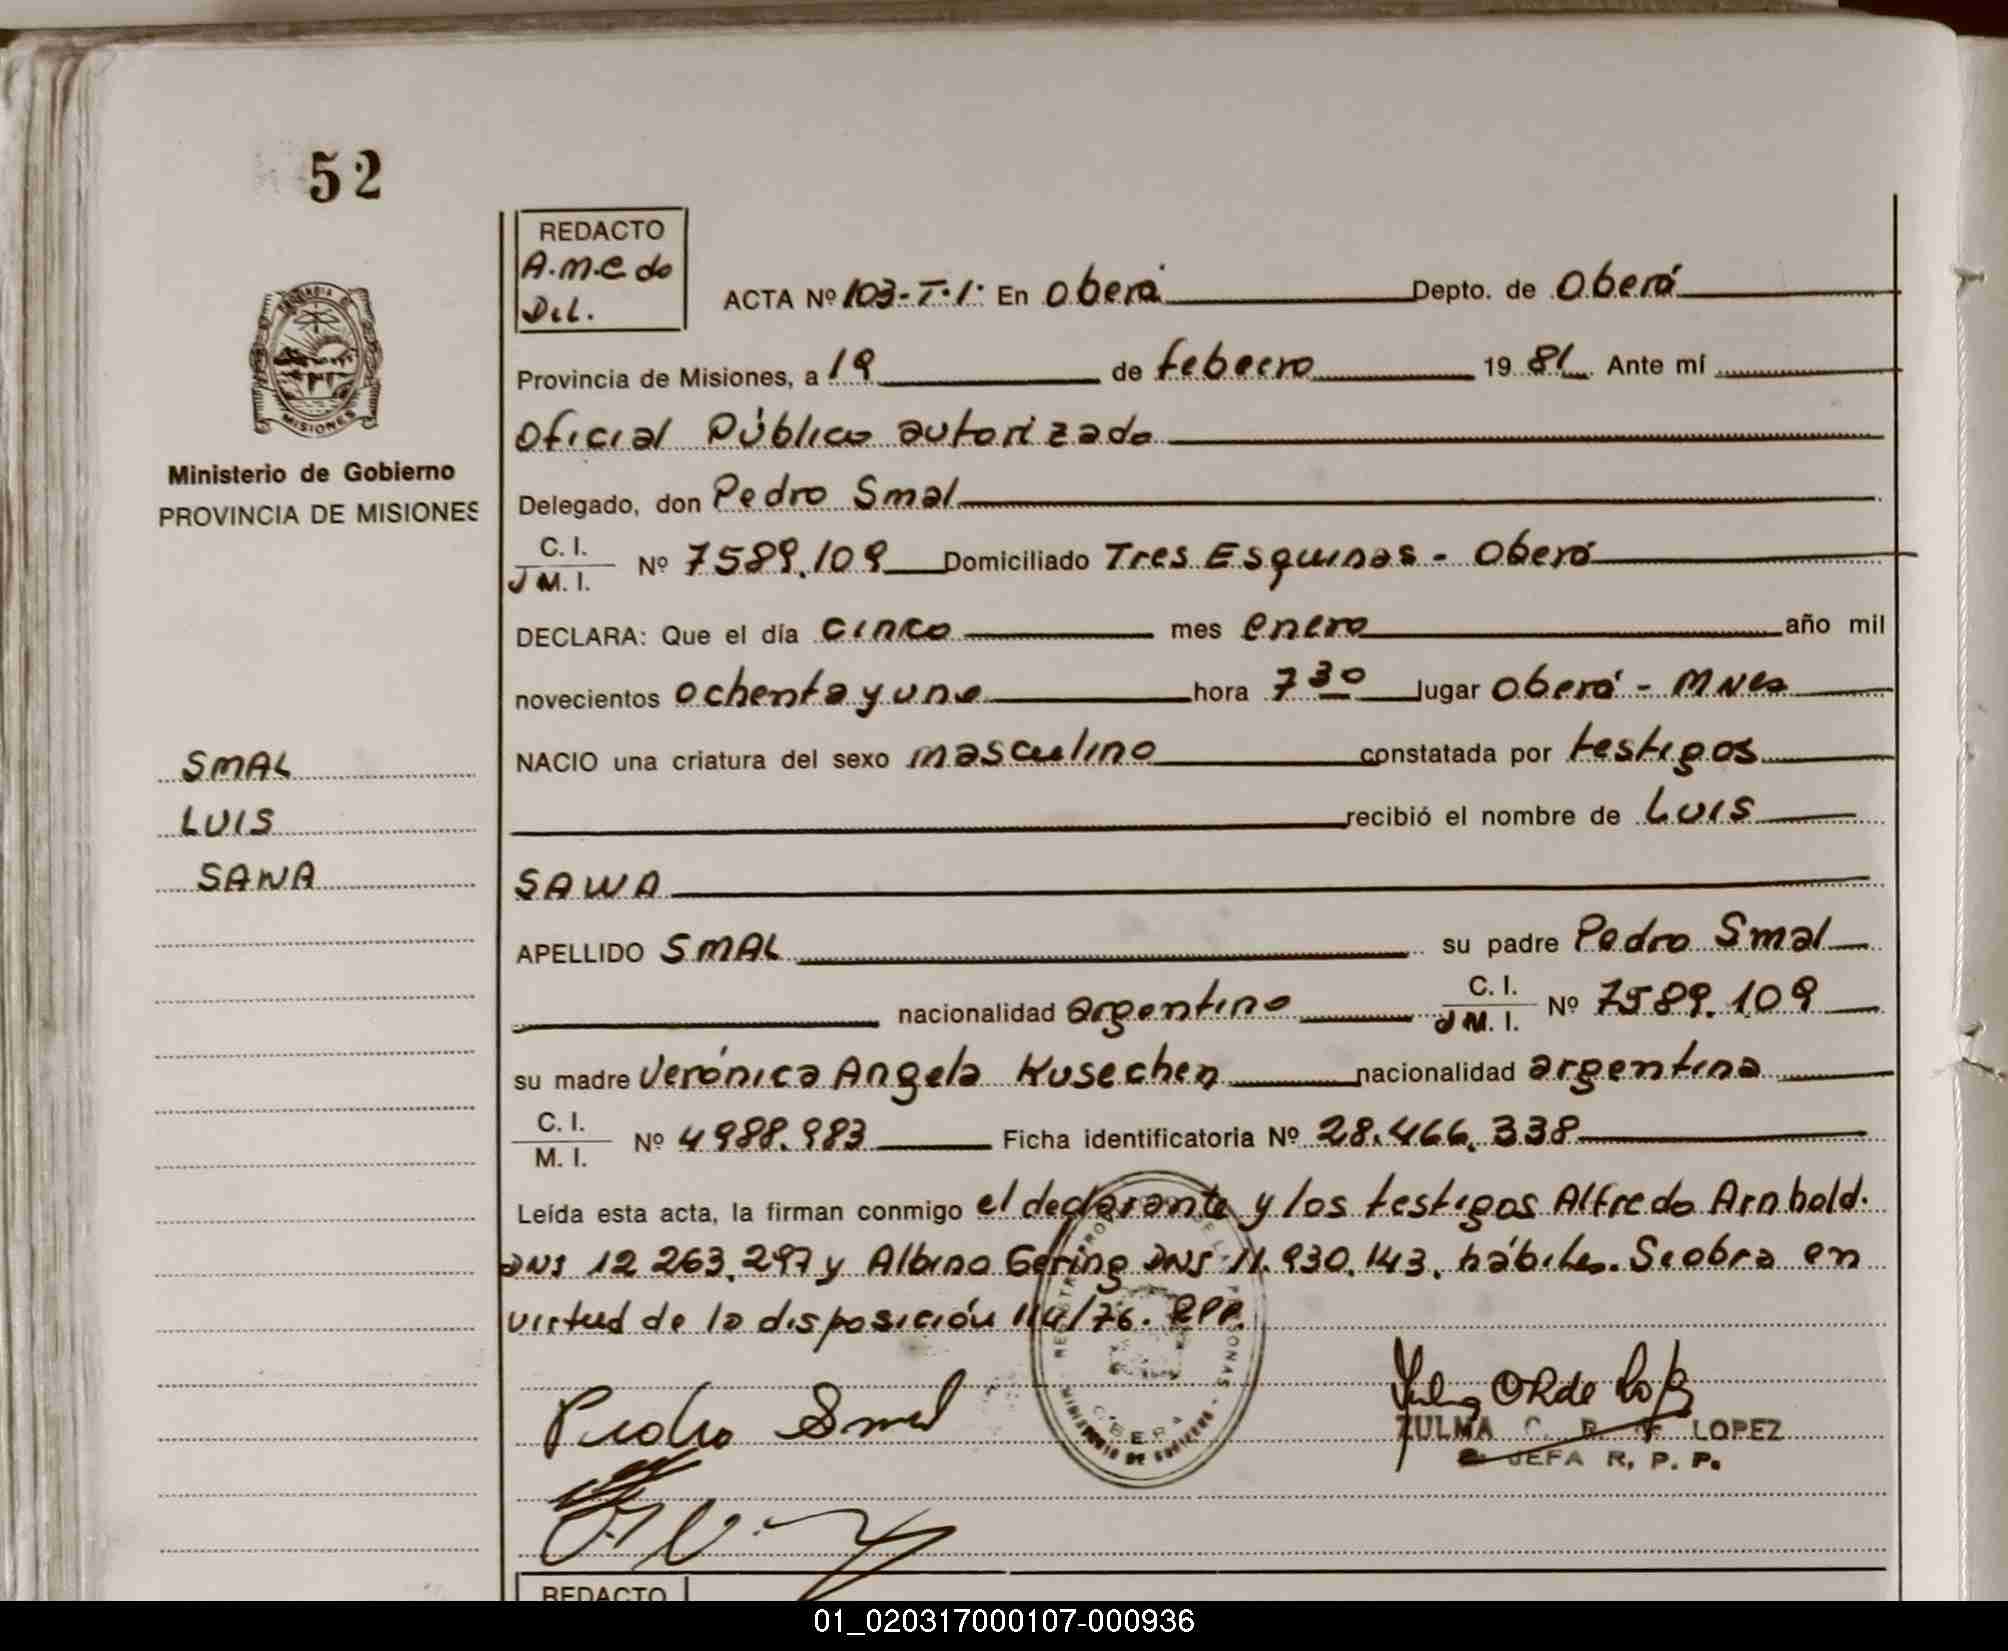 52
REDACTO
A.M.C de
D.L.
ACTA Nº 103-T.I. En Oberá Depto. de Oberá
Provincia de Misiones, a 19 de febrero 1981. Ante mí
Oficial Público autorizado
Ministerio de Gobierno
PROVINCIA DE MISIONES
Delegado, don Pedro Smal
C. I.
M. I. Nº 7589.109 Domiciliado Tres Esquinas - Oberá
DECLARA: Que el día cinco mes enero año mil
novecientos ochenta y uno hora 7 30 lugar Oberá - Mnes
SMAL
LUIS
SAWA
NACIO una criatura del sexo masculino constatada por testigos
recibió el nombre de LUIS
SAWA
APELLIDO SMAL su padre Pedro Smal
nacionalidad argentino C. I. M. I. Nº 7589.109
su madre Verónica Angela Kusechen nacionalidad argentina
C. I.
M. I. Nº 4988.983 Ficha identificatoria Nº 28.466.338
Leída esta acta, la firman conmigo el declarante y los testigos Alfredo Arnhold.
DNI 12 263.297 y Albino Gering DNI 11.930.143. hábiles. Se obra en
virtud de la disposición 114/76. RPP.
Pedro Smal
ZULMA C. R. de LOPEZ
JEFA R. P. P.
REDACTO
01_020317000107-000936